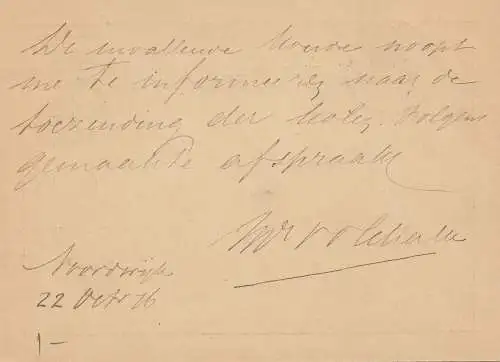 De invallende koude noopt
me te informeren naar de
toezending der kolen volgens
gemaakte afspraak
Mr
Noordwijk
22 Octr 76
1-